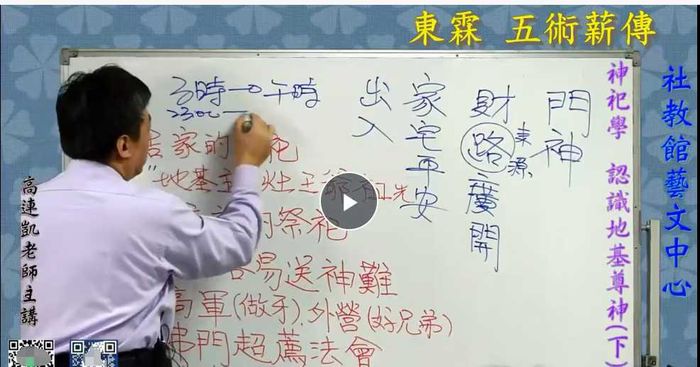 東霖 五術薪傳
社教館藝文中心
神祀學 認識地基尊神(下)
高連凱老師主講
門神
財路廣開
東源
家宅平安
出入
子時→午時
2300
居家的 祀
"地基主 灶王爺 祖先
的祭祀
易送神難
高軍(做牙).外營(好兄弟)
佛門超薦法會